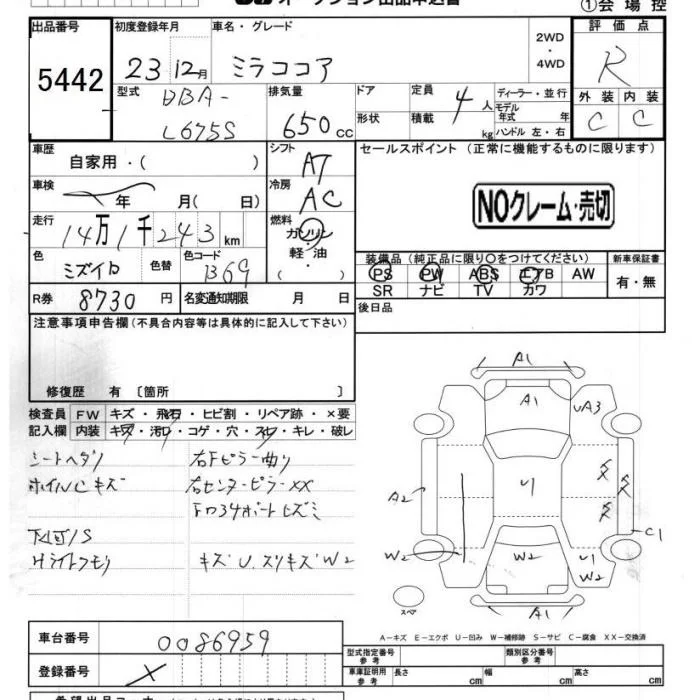 オークション出品申込書
①会場控
出品番号
5442
初度登録年月
23 12月
車名・グレード
ミラココア
2WD
・
4WD
評価点
R
型式
DBA-
L675S
排気量
650cc
ドア
形状
定員
4人
積載
kg
ディーラー・並行
モデル年式 年
ハンドル 左・右
外装 内装
C C
車歴
自家用・( )
シフト
AT
セールスポイント (正常に機能するものに限ります)
車検
年 月( 日)
冷房
AC
NOクレーム・売切
走行
14万1千243km
燃料
ガソリン
・
軽油
・
( )
色
ミズイロ
色替
色コード
B69
装備品 (純正品に限り○をつけてください)
PS PW ABS エアB AW
SR ナビ TV カワ
新車保証書
有・無
R券
8730円
名変通知期限 月 日
後日品
注意事項申告欄(不具合内容等は具体的に記入して下さい)
修復歴 有 〔箇所 〕
検査員 FW キズ・飛石・ヒビ割・リペア跡・×要
記入欄 内装 キズ・汚レ・コゲ・穴・スレ・キレ・破レ
シートヘタリ 右Fピラー曲り
ホイルCキズ 右センターピラーXX
下廻り/S
Hライトクモリ キズ U. スリキズ W2
A1
A1
UA3
A2
U1
C1
W2
W2
U1
W2
A1
スペア
A−キズ E−エクボ U−凹み W−補修跡 S−サビ C−腐食 XX−交換済
車台番号
0086959
登録番号
型式指定番号
参考
類別区分番号
参考
車庫証明用
参考
長さ cm
幅 cm
高さ cm